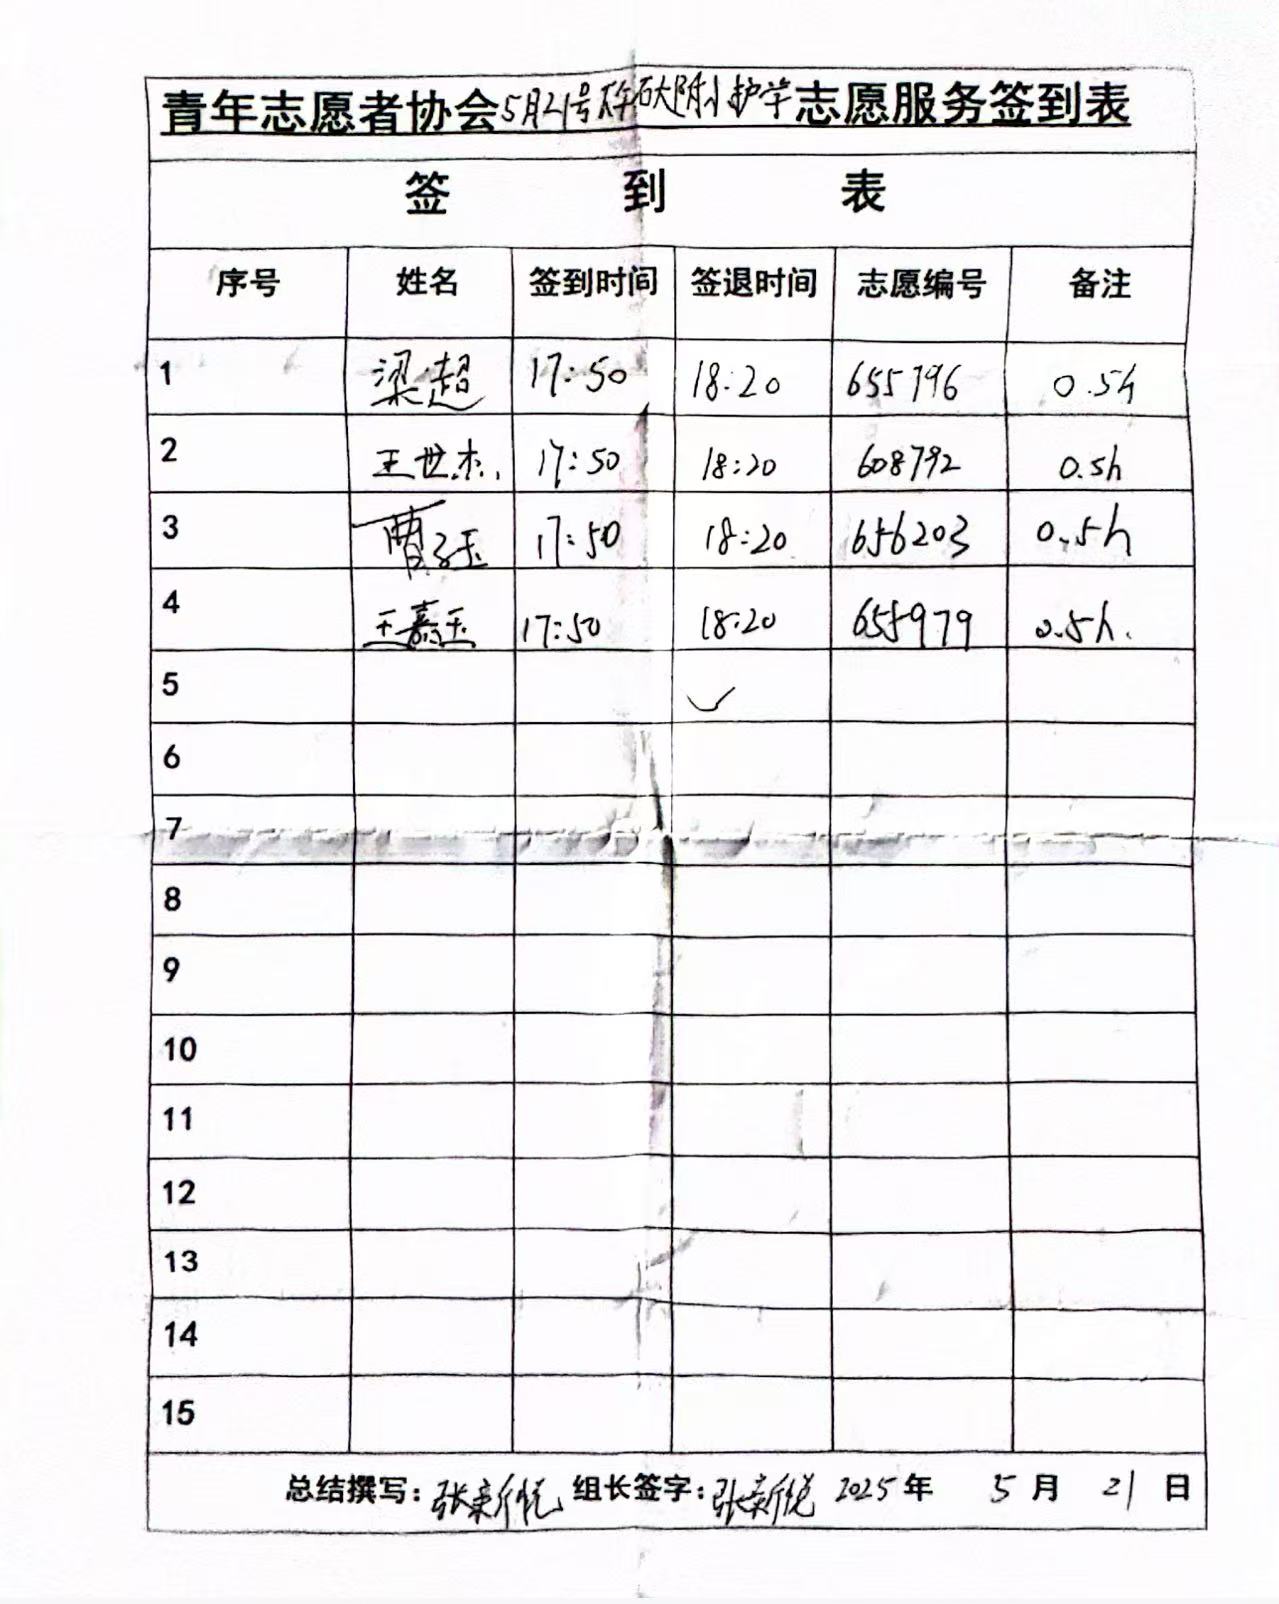 青年志愿者协会5月21号石大附小护学志愿服务签到表
签 到 表
序号 姓名 签到时间 签退时间 志愿编号 备注
1 梁超 17:50 18:20 655796 0.5h
2 王世杰 17:50 18:20 608792 0.5h
3 曹子玉 17:50 18:20 656203 0.5h
4 王嘉玉 17:50 18:20 655979 0.5h.
5 ✓
6
7
8
9
10
11
12
13
14
15
总结撰写:张新悦 组长签字:张新悦 2025年 5月 21日